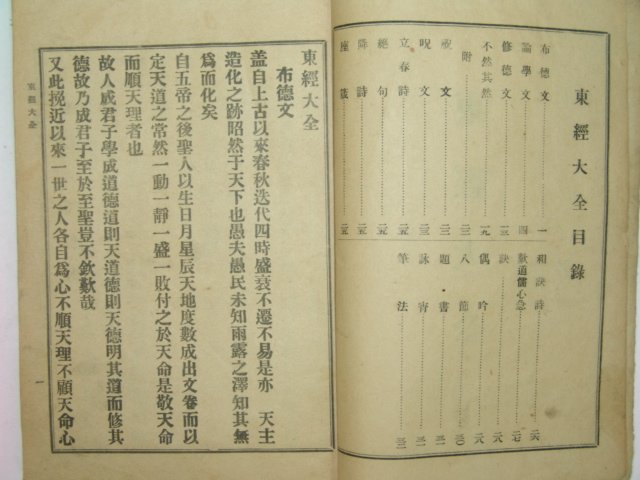 東經大全目錄
布德文 一
論學文 四
修德文 一三
不然其然 一九
附
祝文 二三
呪文 二三
立春詩 二五
絕句 二五
降詩 二五
座箴 二五
和訣詩 二六
歎道儒心急 二七
訣 二八
偶吟 二八
八節 三〇
題書 三一
詠宵 三一
筆法 三二
東經大全
布德文
盖自上古以來春秋迭代四時盛衰不遷不易是亦 天主
造化之跡昭然于天下也愚夫愚民未知雨露之澤知其無
爲而化矣
自五帝之後聖人以生日月星辰天地度數成出文卷而以
定天道之常然一動一靜一盛一敗付之於天命是敬天命
而順天理者也
故人成君子學成道德道則天道德則天德明其道而修其
德故乃成君子至於至聖豈不欽歎哉
又此挽近以來一世之人各自爲心不順天理不顧天命心
東經大全
一